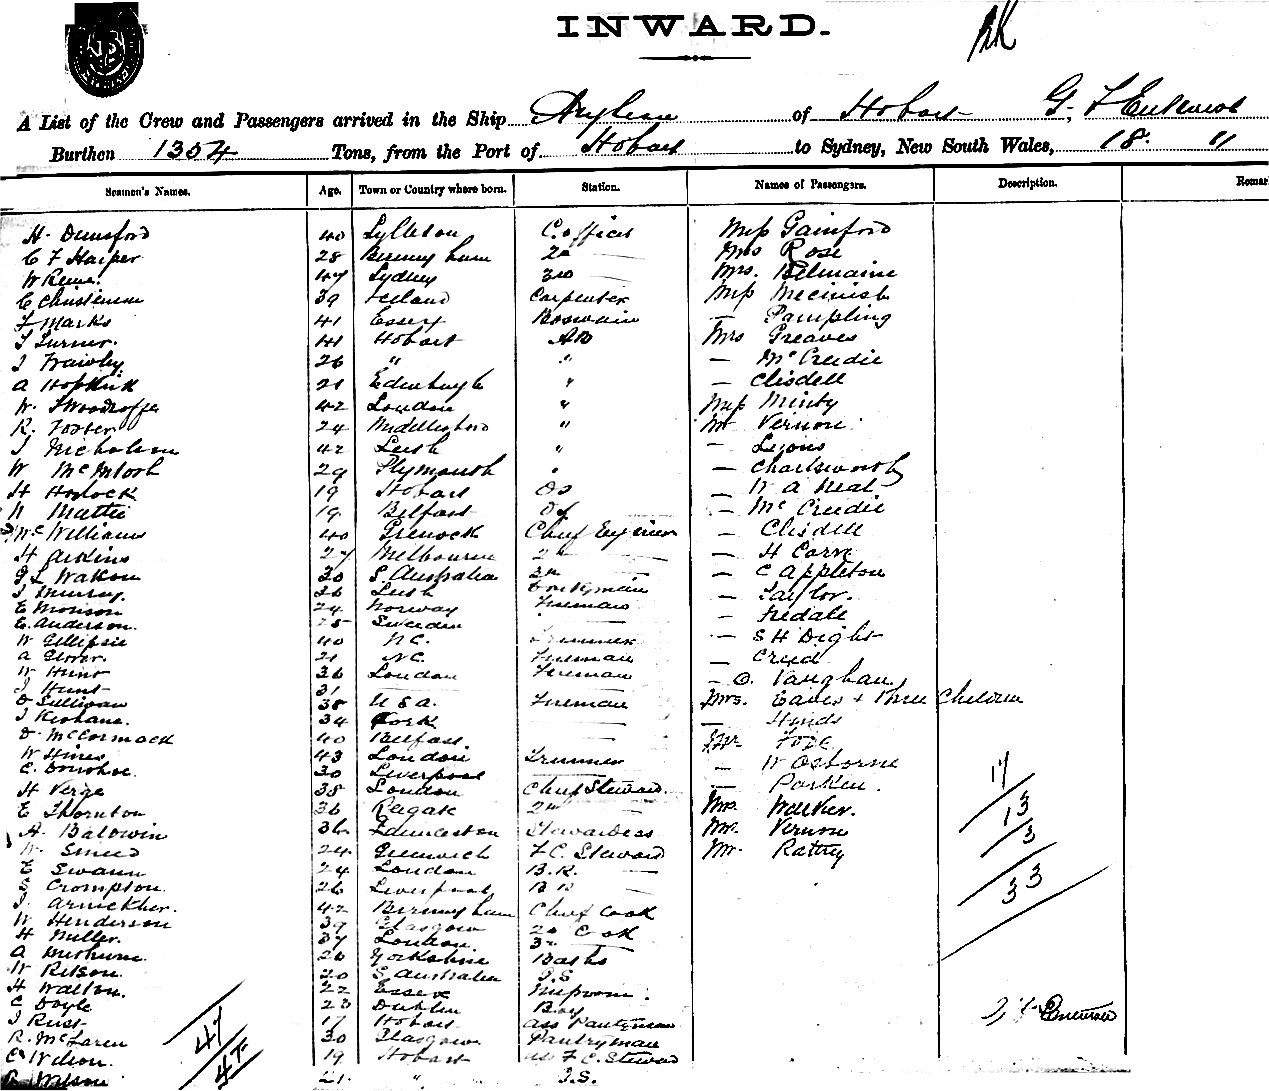 INWARD.
A List of the Crew and Passengers arrived in the Ship of Hobart G.
Burthen 1354 Tons, from the Port of Hobart to Sydney, New South Wales, 18. "
Seamen's Names. Age. Town or Country where born. Station. Names of Passengers. Description. Remar
H. Dunsford 40 Lyttleton C. officer Miss Gainford
C F Harper 28 Birmingham 2d — Mrs Rose
W 47 Sydney 3rd — Mrs. Belmaine
C Christensen 39 Iceland Carpenter Miss
F Marks 41 Essex Boswain — Pampling
T Turner. 41 Hobart AB Mrs Greaves
J Frawley 26 " " — McCredie
A Hopkirk 21 Edinburgh " — Clisdell
W. Woodroffe 42 London " Miss Minty
R. Foster 24 Middlesboro " Mr Vernon
J Nicholson 42 Leith " — Lyons
W McIntosh 29 Plymouth " — Charlsworth
H 19 Hobart OS — W A Neal
N Mattie 19 Belfast OS — McCredie
McWilliams 40 Grenock Chief Engineer — Clisdell
H Aikins 27 Melbourne 2d — — H Corry
G L Watson 30 S. Australia 3rd — — C Appleton
J Murray. 36 Leith Donkeyman — Taylor.
E Monson 24 Norway Fireman — Iredale
E. Anderson. 25 Sweden — — S H Dight
W Gillipsie 40 N.C. Trimmer — Creed
A Glover. 21 N.C. Fireman — O. Vaughan
W Hunt 36 London Fireman Mrs. Eaves + Three Children
J Hunt 31 — — — Hinds
D Sullivan 38 U S A. Fireman Mr
J Keohane. 34 Cork — — W Osborne
D. McCormack 40 Belfast — — Parker.
W Hines 43 London Trimmer Mrs. Walker.
C. Donohoe 30 Liverpool — Mrs. Vernon
H Verge 38 London Chief Steward Mr Rattray
E Thornton 36 Reigate 2d —
A. Baldwin 36 Launceston Stewardess
W. Smeed 24 Greenwich F. C. Steward
E Swann 24 London B.R. —
Crompton. 26 Liverpool B R —
J. 42 Birmingham Chief Cook
W Henderson 39 Glasgow 2d Cook
H Miller. 37 London 3rd —
A 26 Yorkshire Baths
W 20 S. Australia G.S
H Walton. 22 Essex Messroom.
C Doyle 23 Dublin Boy
J Rust 17 Hobart Ass Pantryman
R. McLaren 30 Glasgow Pantryman
C. Wilson. 19 Hobart ass F. C. Steward
Wilson 21 " G.S.
17
13
3
33
47
47